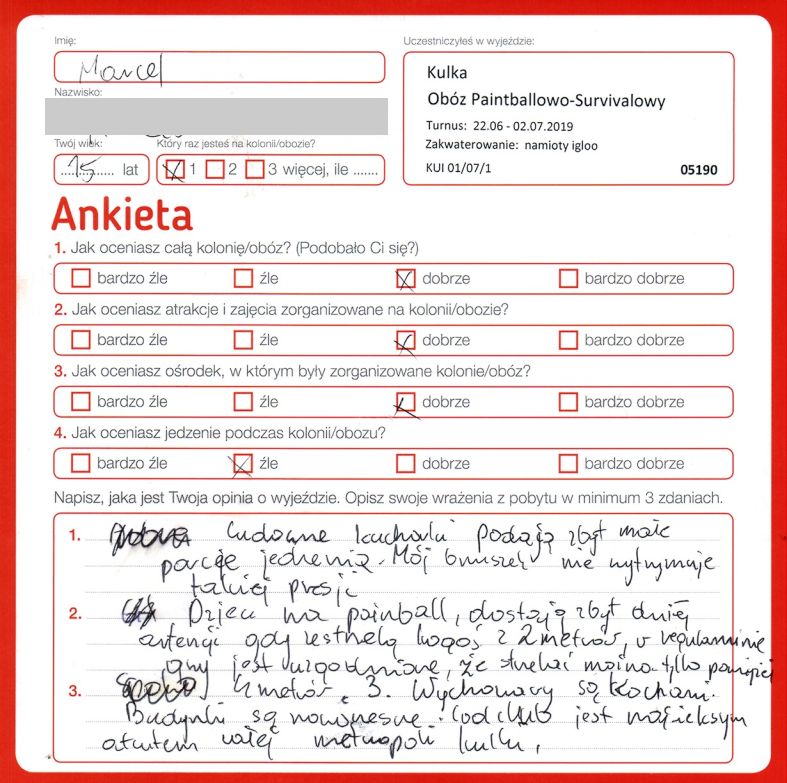 Imię:
Marcel
Nazwisko:
Twój wiek:
15 lat
Który raz jesteś na kolonii/obozie?
1 2 3 więcej, ile .......
Uczestniczyłeś w wyjeździe:
Kulka
Obóz Paintballowo-Survivalowy
Turnus: 22.06 - 02.07.2019
Zakwaterowanie: namioty igloo
KUI 01/07/1 05190
Ankieta
1. Jak oceniasz całą kolonię/obóz? (Podobało Ci się?)
bardzo źle źle dobrze bardzo dobrze
2. Jak oceniasz atrakcje i zajęcia zorganizowane na kolonii/obozie?
bardzo źle źle dobrze bardzo dobrze
3. Jak oceniasz ośrodek, w którym były zorganizowane kolonie/obóz?
bardzo źle źle dobrze bardzo dobrze
4. Jak oceniasz jedzenie podczas kolonii/obozu?
bardzo źle źle dobrze bardzo dobrze
Napisz, jaka jest Twoja opinia o wyjeździe. Opisz swoje wrażenia z pobytu w minimum 3 zdaniach.
1. Cudowne kucharki podają zbyt małe
porcje jedzenia. Mój brzuszek nie wytrzymuje
takiej presji
2. Dzieci na painball, dostają zbyt dużej
atencji gdy zestrzelą kogoś z 2 metrów, w regulaminie
gry jest uzgodnione, że strzelać można tylko powyżej
3. 4 metrów. 3. Wychowawcy są kochani.
Budynki są nowoczesne. jest największym
atutem całej metropoli kulki.